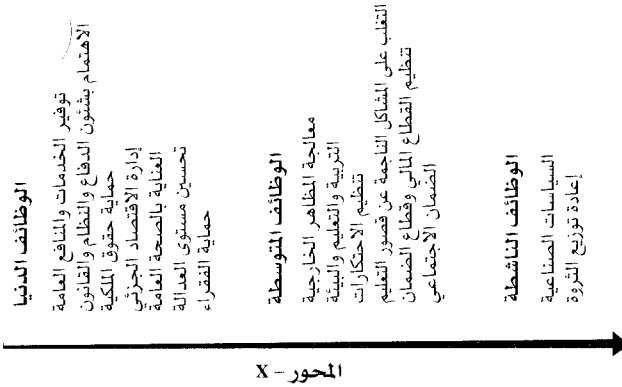 الوظائف الدنيا
توفير الخدمات والمنافع العامة
الاهتمام بشئون الدفاع والنظام والقانون
حماية حقوق الملكية
إدارة الاقتصاد الجزئي
العناية بالصحة العامة
تحسين مستوى العدالة
حماية الفقراء
الوظائف المتوسطة
معالجة المظاهر الخارجية
التربية والتعليم والبيئة
تنظيم الاحتكارات
التغلب على المشاكل الناجمة عن قصور التعليم
تنظيم القطاع المالي وقطاع الضمان
الضمان الاجتماعي
الوظائف الناشطة
السياسات الصناعية
إعادة توزيع الثروة
المحور - X